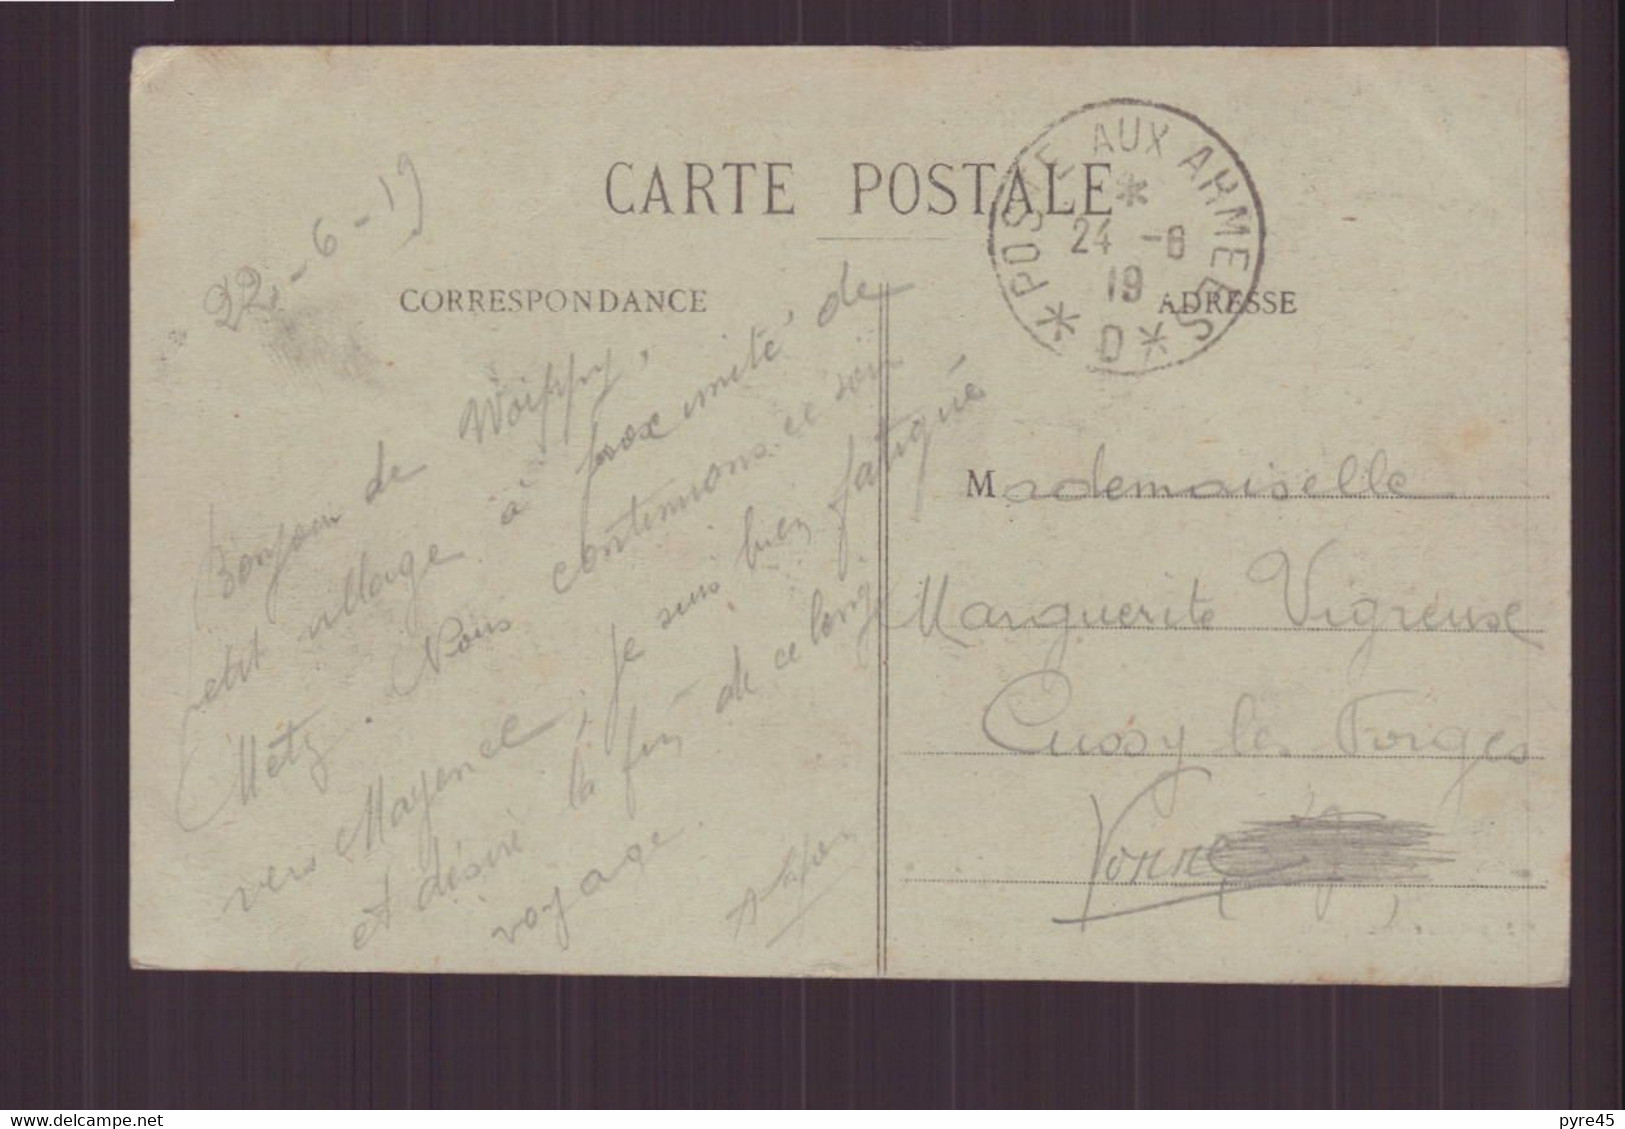 CARTE POSTALE
POSTE AUX ARMEES
24 -6
19
D
CORRESPONDANCE
ADRESSE
22-6-19
Bonjour de Woippy,
petit village à proximité de
Metz. Nous continuons ce soir
vers Mayence, je suis bien fatigué
et désire la fin de ce long
voyage.
Mademoiselle
Marguerite Vigreux
Cussy les Forges
Yonne
pyre45